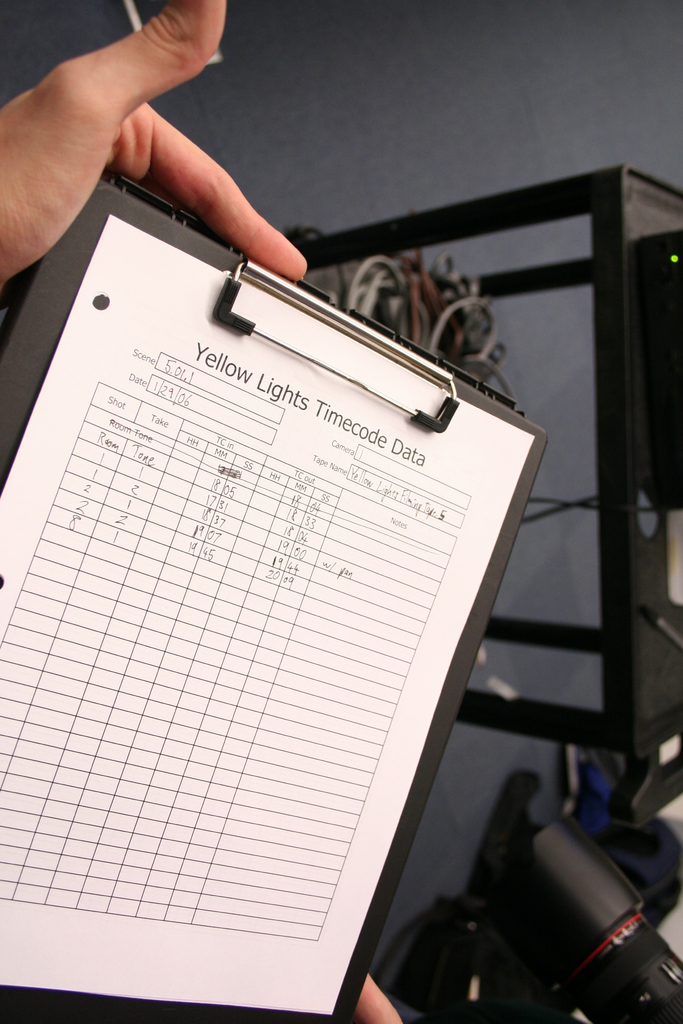 Yellow Lights Timecode Data
Scene 5.01.1
Date 1/29/06
Camera 1
Tape Name Yellow Lights Filming Tape 5
Shot Take TC in TC out Notes
HH MM SS HH MM SS
Room Tone
Room Tone 18 05 18 04
1 2 17 31 18 33
2 1 18 37 18 06
2 2 19 07 19 00
8 19 45 19 44 w/ pan
20 09